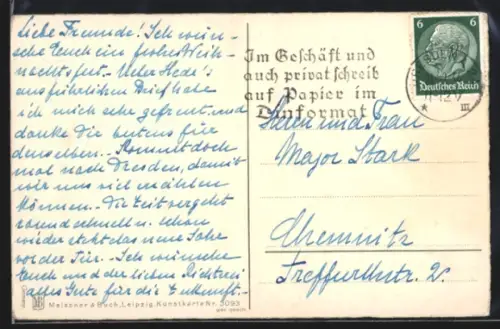 Liebe Freunde! Ich wün-
sche Euch ein frohes Weih-
nachtsfest. - Ueber Hede's
ausführlichen Brief habe
ich mich sehr gefreut und
danke Dir bestens für
denselben. - Kommt doch
mal nach Dresden, damit
wir uns viel erzählen
können. - Die Zeit vergeht
so und schnell u. schon
wieder steht das neue Jahr
vor der Tür. - Ich wünsche
Euch und der lieben
alles Gute für die Zukunft. -
Meissner & Buch, Leipzig, Kunstkarte Nr. 3093
Im Geschäft und
auch privat schreib
auf Papier im
Dinformat
6 6
Deutsches Reich
Herrn und Frau
Major Stark
Chemnitz
Treffurthstr. 2.